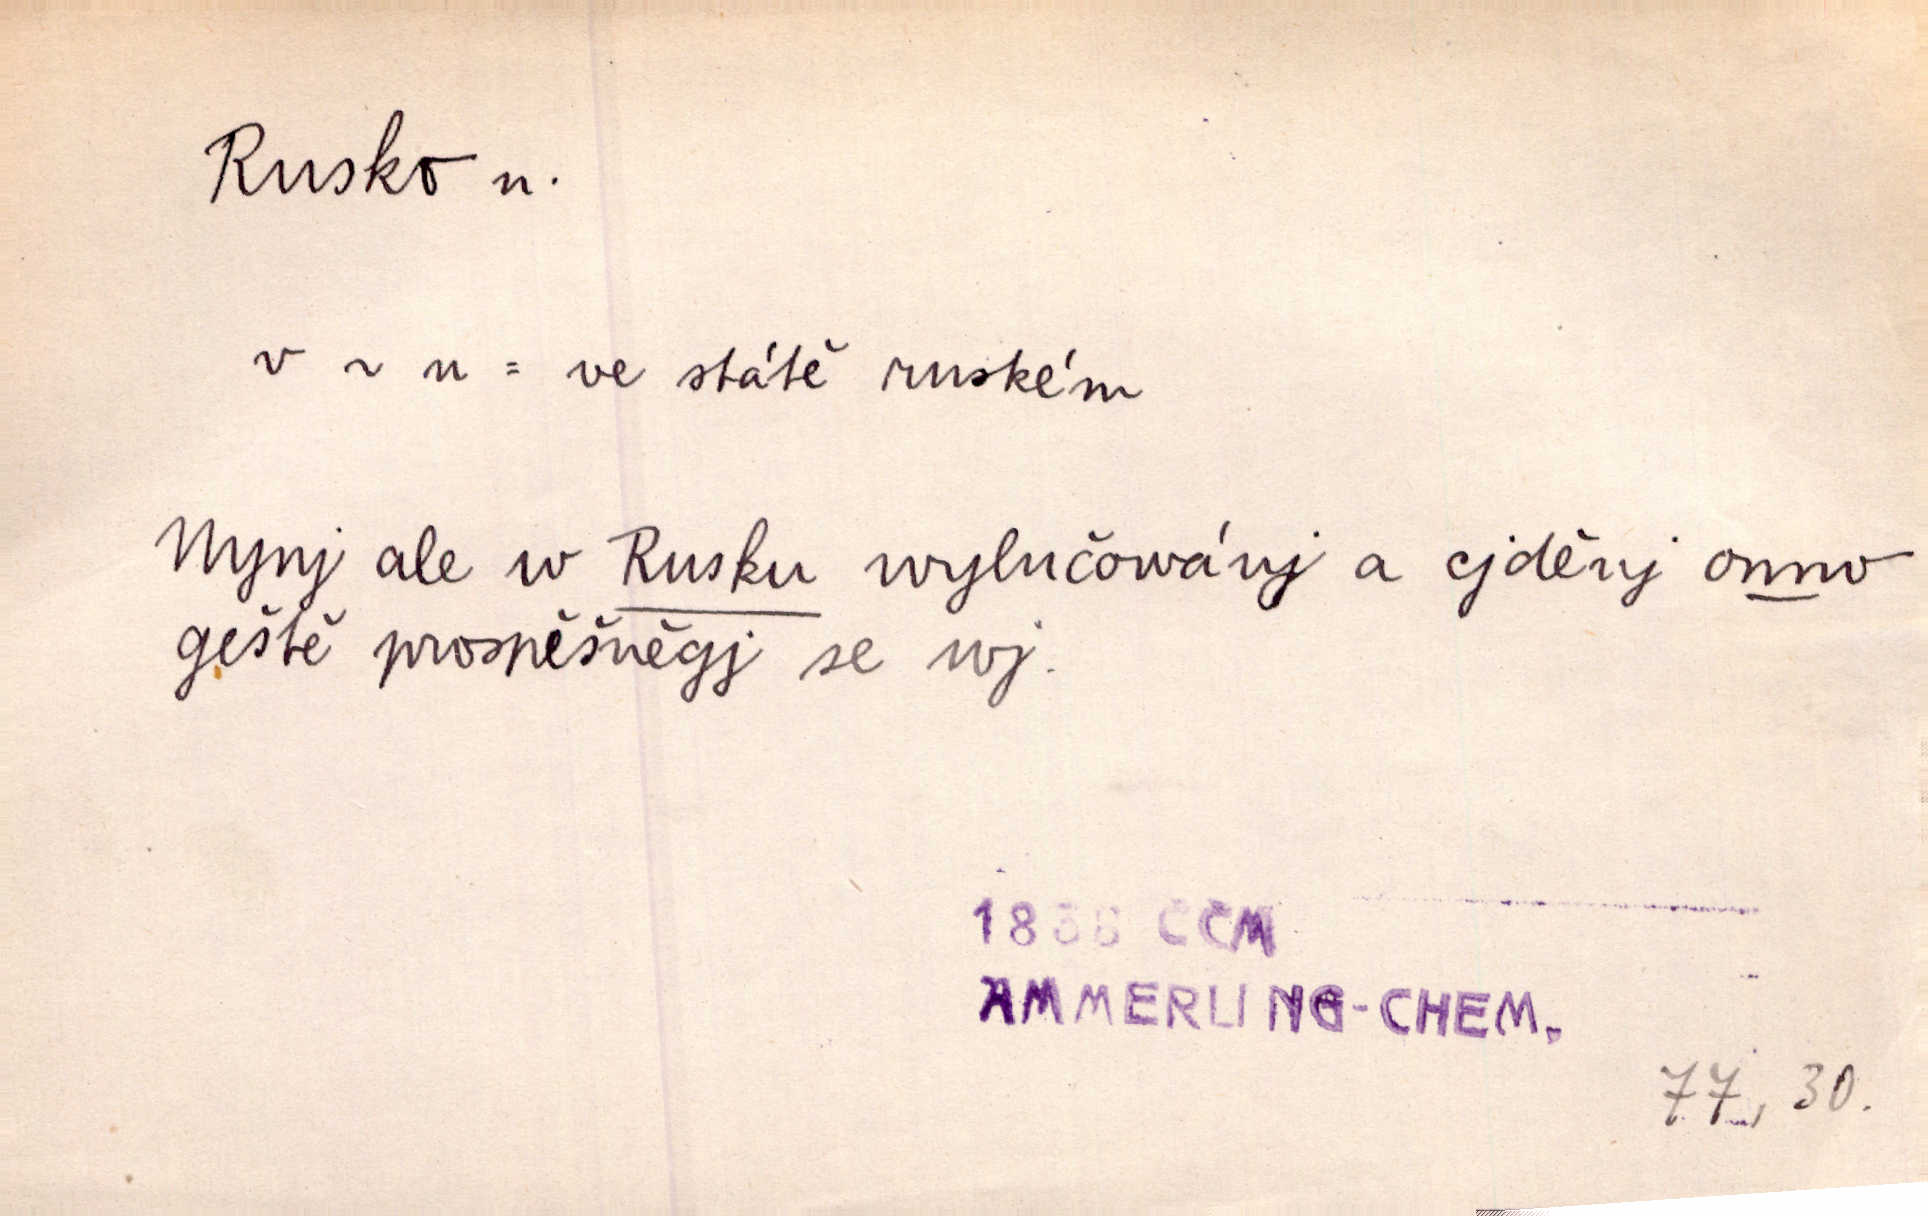 Rusko n.
v ~ u = ve státě ruském
Nynj ale w Rusku wylučowánj a cjděnj onno
geště prospěšněgj se wj.
1838 ČČM
AMMERLING-CHEM.
77, 30.